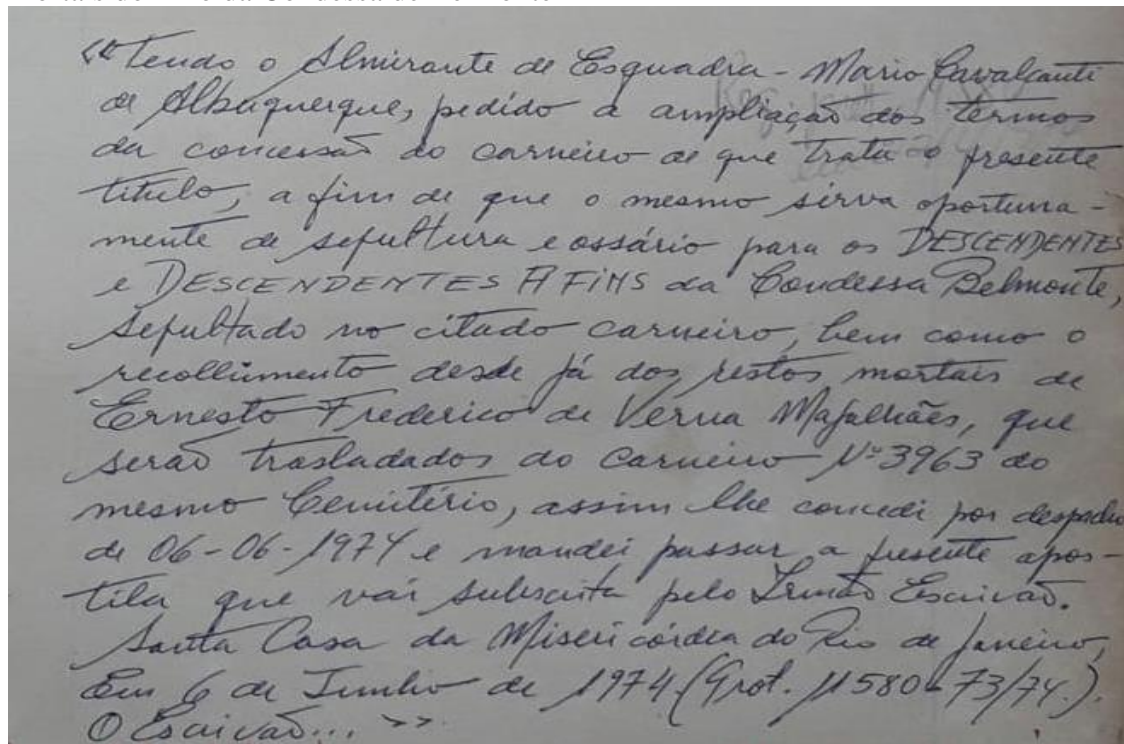 «Tendo o Almirante de Esquadra - Mario Cavalcanti
de Albuquerque, pedido a ampliação dos termos
da concessão do carneiro de que trata o presente
título, a fim de que o mesmo sirva oportuna-
mente de sepultura e ossário para os DESCENDENTES
e DESCENDENTES AFINS da Condessa Belmonte,
sepultado no citado carneiro, bem como o
recolhimento desde já dos restos mortais de
Ernesto Frederico de Verna Magalhães, que
serão trasladados do carneiro Nº 3963 do
mesmo Cemitério, assim lhe concedi por despacho
de 06-06-1974 e mandei passar a presente apos-
tila que vai subscrita pelo Irmão Escrivão.
Santa Casa da Misericórdia do Rio de Janeiro,
Em 6 de Junho de 1974. (Prot. 11580-73/74.).
O Escrivão... »